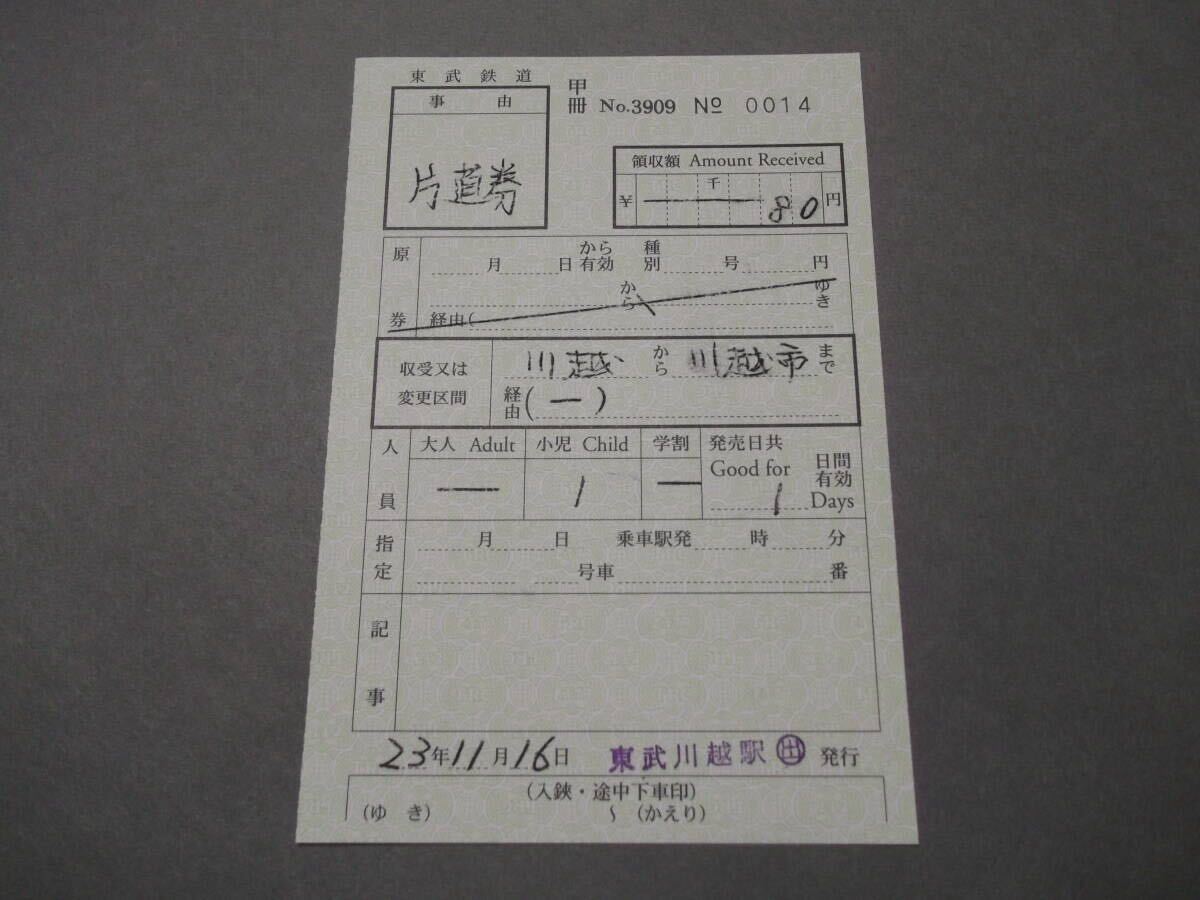 東武鉄道
事由
片道券
甲冊 No.3909 No 0014
領収額 Amount Received
千
¥ 80 円
原券
月 日 から有効 種別 号 円
から ゆき
経由(
収受又は変更区間
川越 から 川越市 まで
経由 (ー)
人員
大人 Adult 小児 Child 学割 発売日共
ー 1 ー Good for 1 日間有効 Days
指定
月 日 乗車駅発 時 分
号車 番
記事
23年11月16日 東武川越駅 出 発行
(入鋏・途中下車印)
(ゆき) 〜 (かえり)